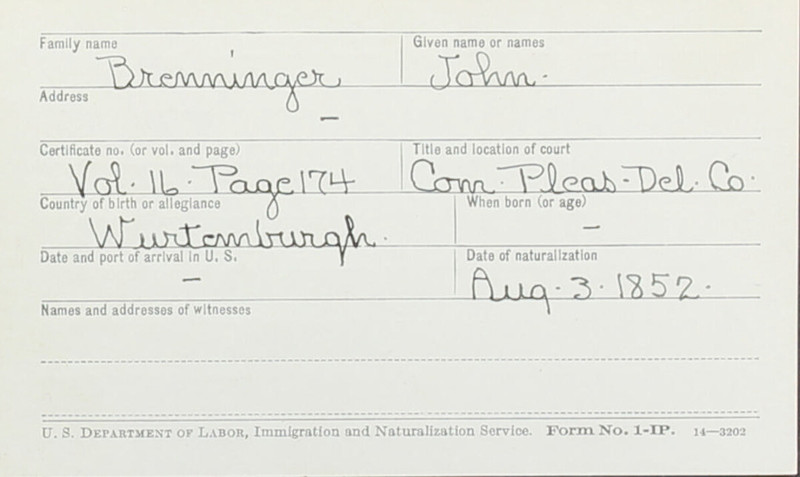 Family name Given name or names
Brenninger John.
Address
—
Certificate no. (or vol. and page) Title and location of court
Vol. 16. Page 174 Com. Pleas. Del. Co.
Country of birth or allegiance When born (or age)
Wurtemburgh. —
Date and port of arrival in U. S. Date of naturalization
— Aug. 3. 1852.
Names and addresses of witnesses
U. S. Department of Labor, Immigration and Naturalization Service. Form No. 1-IP. 14—3202